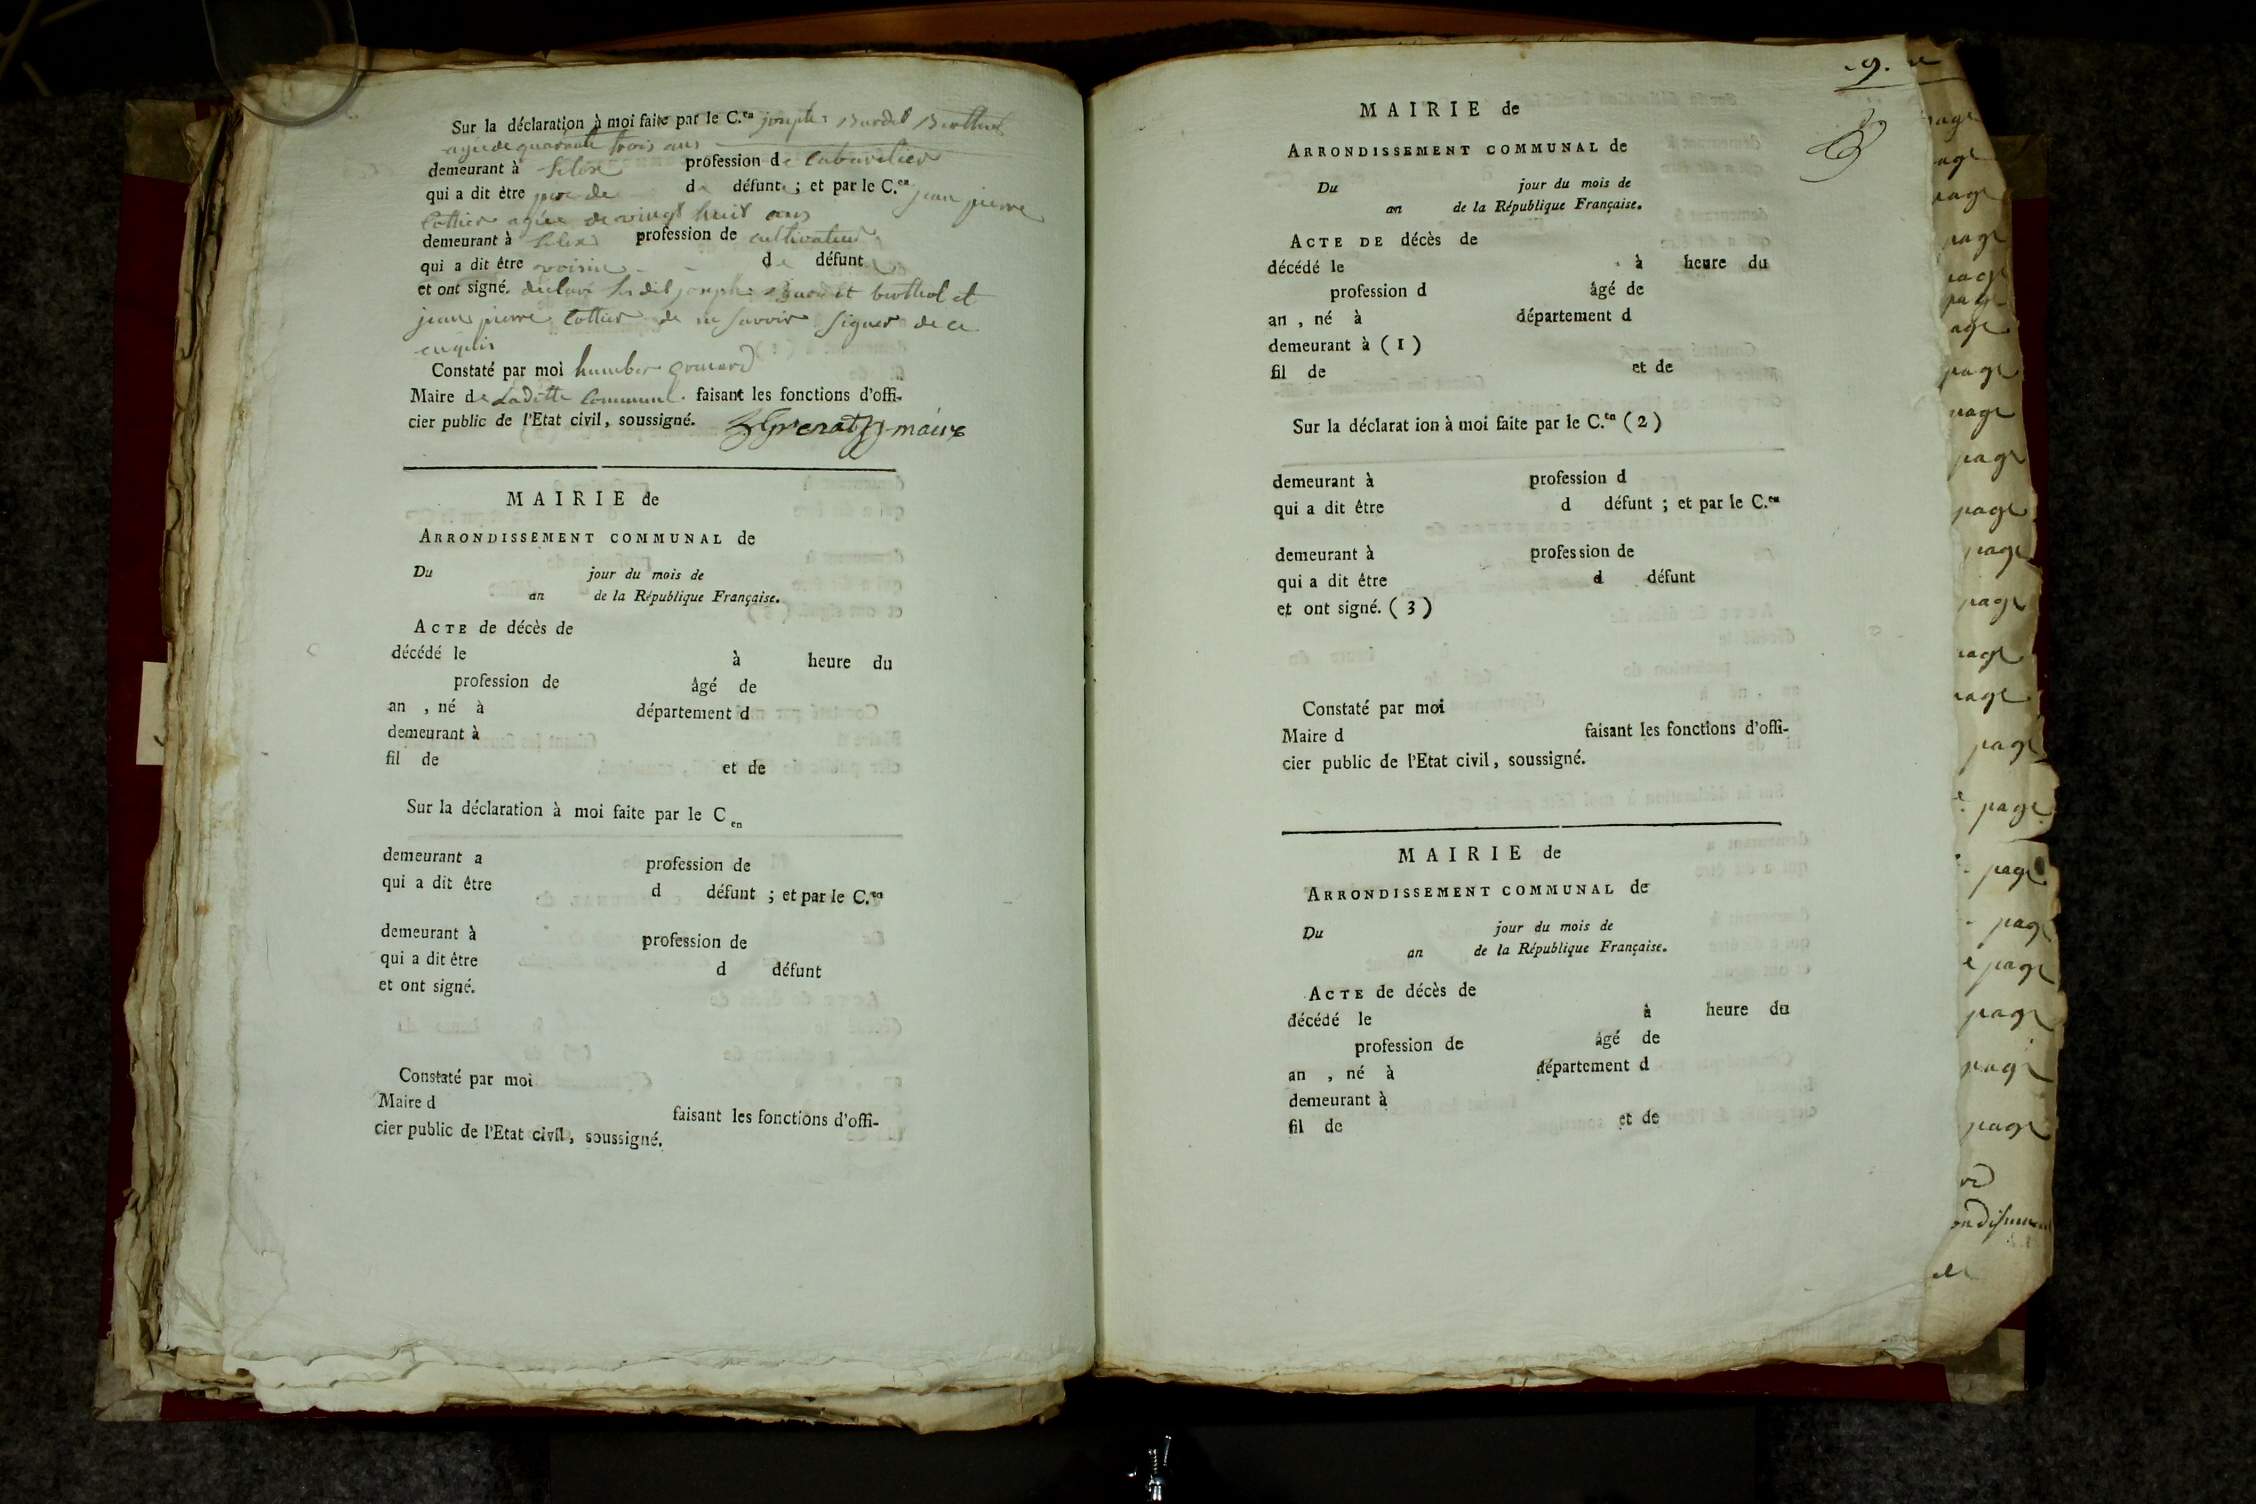 Sur la déclaration à moi faite par le C.en joseph Burdet Berthol
agée de quarante trois ans
demeurant à profession de Cabaretier
qui a dit être pere de d défunt ; et par le C.en jean pierre
Cottier agée de vingt huit ans
demeurant à profession de cultivateur
qui a dit être voisin d défunt
et ont signé. declaré joseph berthol et
jean pierre Cottier de ne savoir signer de ce
enquis
Constaté par moi humber
Maire de Laditte Commune faisant les fonctions d'offi-
cier public de l'Etat civil, soussigné. maire
MAIRIE de
ARRONDISSEMENT COMMUNAL de
Du jour du mois de
an de la République Française.
ACTE de décès de
décédé le à heure du
profession de âgé de
an , né à département d
demeurant à
fil de et de
Sur la déclaration à moi faite par le C en
demeurant a profession de
qui a dit être d défunt ; et par le C.en
demeurant à profession de
qui a dit être d défunt
et ont signé.
Constaté par moi
Maire d faisant les fonctions d'offi-
cier public de l'Etat civil, soussigné.
9.
MAIRIE de
ARRONDISSEMENT COMMUNAL de
Du jour du mois de
an de la République Française.
ACTE DE décès de
décédé le à heure du
profession d âgé de
an , né à département d
demeurant à (1)
fil de et de
Sur la déclarat ion à moi faite par le C.en (2)
demeurant à profession d
qui a dit être d défunt ; et par le C.en
demeurant à profession de
qui a dit être d défunt
et ont signé. (3)
Constaté par moi
Maire d faisant les fonctions d'offi-
cier public de l'Etat civil, soussigné.
MAIRIE de
ARRONDISSEMENT COMMUNAL de
Du jour du mois de
an de la République Française.
ACTE de décès de
décédé le à heure du
profession de âgé de
an , né à département d
demeurant à
fil de et de
page
page
page
page
page
page
page
page
page
page
page
page
page
page
page
page
page
page
page
page
page
page
page